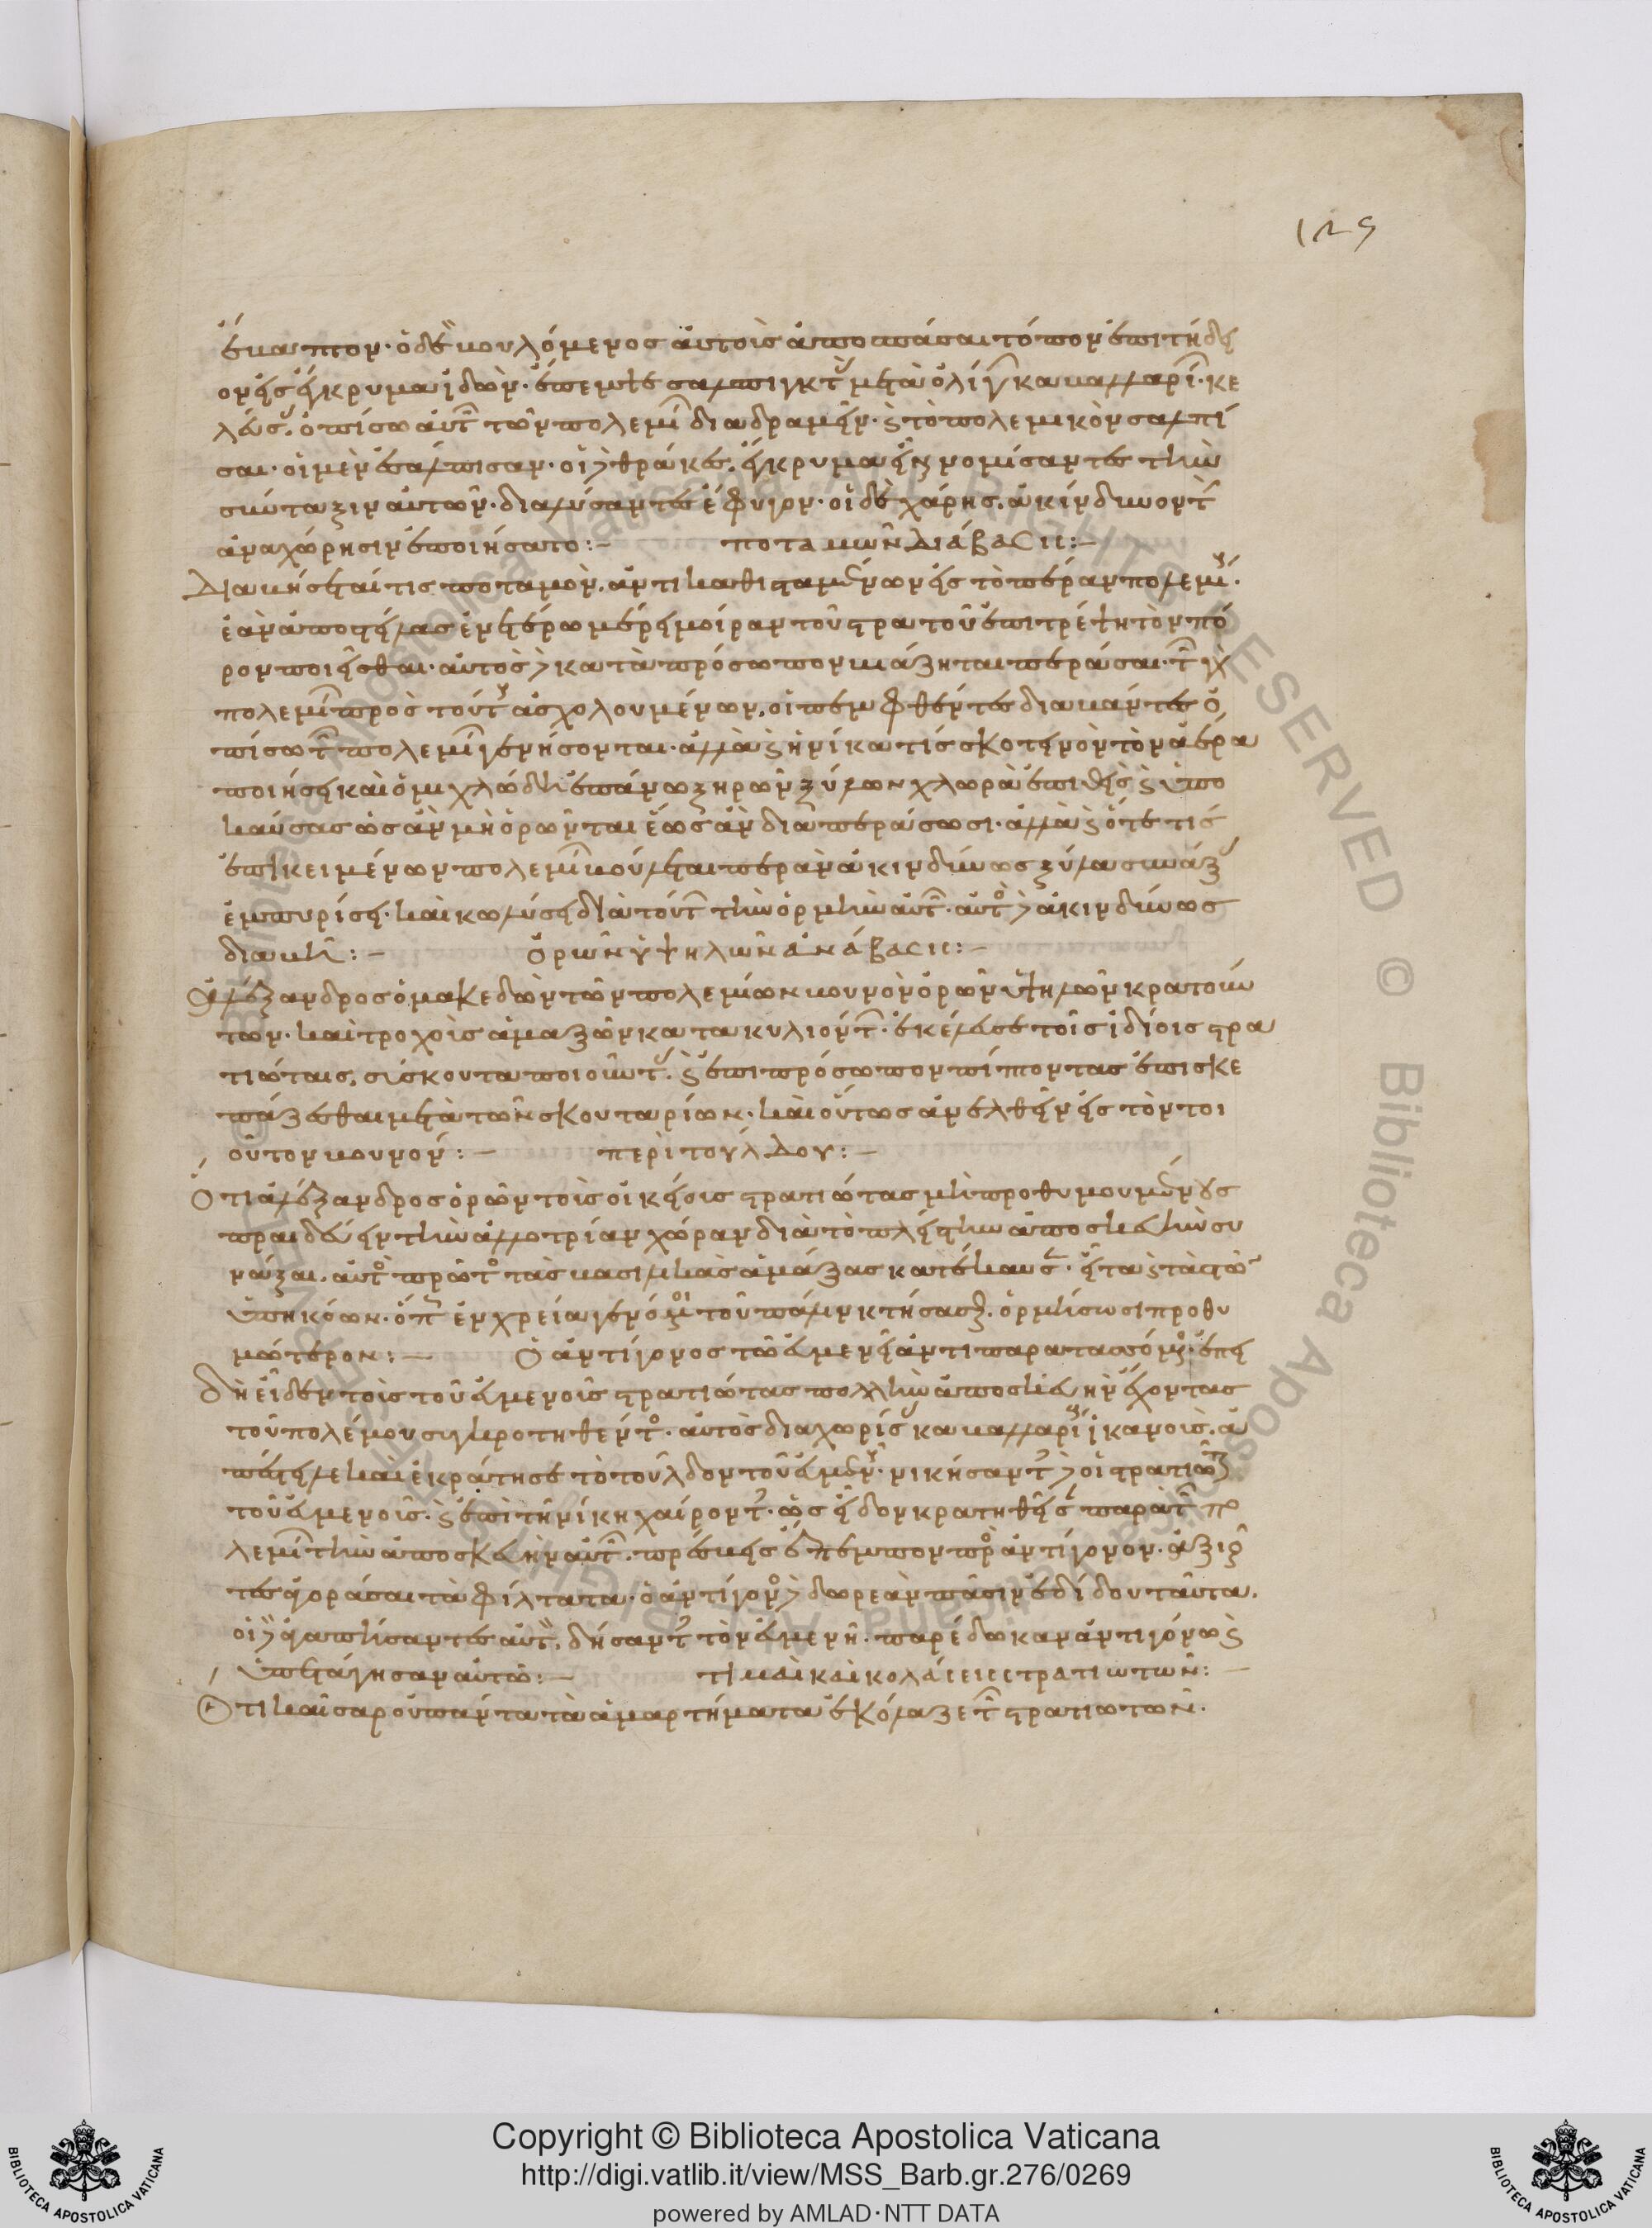 129
ἔκαμπτον· ὁ δὲ βουλόμενος αὐτοὺς ἀποσπάσαι τόπον ἐπιτήδει
ον εἰς ἔγκρυμμα ἰδὼν· ἔπεμψε σαλπιγκτὰς μετὰ ὀλίγων καβαλλαρίων· κε
λεύσας ὀπίσω αὐτῶν τῶν πολεμίων διαδραμεῖν· καὶ τὸ πολεμικὸν σαλπί
σαι· οἱ μὲν ἐσάλπισαν· οἱ δὲ θρᾶκες, ἔγκρυμμα εἶναι νομίσαντες τὴν
σύνταξιν αὐτῶν· διαλύσαντες ἔφυγον· οἱ δὲ χάρης, ἀκίνδυνον τὴν
ἀναχώρησιν ἐποιήσατο:–
ποταμῶν διάβασις:–
Διαβήσεταί τις ποταμὸν, ἀντικαθισταμένων εἰς τὸ πέραν πολεμίων·
ἐὰν ἀποστείλας ἐν ἑτέρῳ μέρει μοῖραν τοῦ στρατοῦ ἐπιτρέψῃ τὸν πό
ρον ποιεῖσθαι· αὐτὸς δὲ κατὰ πρόσωπον βιάζηται περᾶσαι· τῶν γὰρ
πολεμίων πρὸς τούτους ἀσχολουμένων, οἱ πεμφθέντες διαβάντες ὀ
πίσω τῶν πολεμίων γενήσονται· ἀλλὰ καὶ ἡνίκα τις σκοτεινὸν τὸν ἀέρα
ποιήσει καὶ ὁμιχλώδη ἐπάνω ξηρῶν ξύλων χλωρὰ ἐπιθεὶς καὶ ὑπο
καύσας ὡς ἂν μὴ ὁρῶνται ἕως ἂν διαπεράσωσι· ἀλλὰ καὶ ὅτε τις
ἐπικειμένων πολεμίων βούλεται περᾶν ἀκινδύνως ξύλα συνάξας
ἐμπυρίσει· καὶ κωλύσει διὰ τούτων τὴν ὁρμὴν αὐτῶν· αὐτὸς δὲ ἀκινδύνως
διαβῇ:–
ὀρῶν ὑψηλῶν ἀνάβασις:–
Ἀλέξανδρος ὁ μακεδὼν τῶν πολεμίων βουνὸν ὁρῶν ὑψηλῶν κρατούν
των· καὶ τροχοὺς ἁμαξῶν κατακυλιόντων· ἐκέλευσε τοῖς ἰδίοις στρα
τιώταις, σύσκουτα ποιοῦντας καὶ ἐπὶ πρόσωπον πίπτοντας ἐπισκε
πάζεσθαι μετὰ τῶν σκουταρίων· καὶ οὕτως ἀνελθεῖν εἰς τὸν τοι
οῦτον βουνόν:–
περὶ τούλδου:–
Ὅτι ἀλέξανδρος ὁρῶν τοὺς οἰκείους στρατιώτας μὴ προθυμουμένους
πραιδεύειν τὴν ἀλλοτρίαν χώραν διὰ τὸ πλείστην ἀποσκευὴν συ
νάξαι, αὐτὸς πρῶτος τὰς βασιλικὰς ἁμάξας κατέκαυσε· εἶτα καὶ τὰς τῶν
ὑπηκόων· ὅπως ἐν χρείᾳ γενόμενοι τοῦ πάλιν κτήσασθαι, ὁρμήσωσι προθυ
μότερον:–
Ὁ ἀντίγονος τῷ εὐμενεῖ ἀντιπαρατασσόμενος· ἐπει
δὴ εἶδεν τοὺς τοῦ εὐμενοῦς στρατιώτας πολλὴν ἀποσκευὴν ἔχοντας
τοῦ πολέμου συγκροτηθέντος· αὐτὸς διαχωρίσας καβαλλαρίους ἱκανοὺς, ἀ
πέστειλε καὶ ἐκράτησε τὸ τοῦλδον τοῦ εὐμενοῦς· νικήσαντες δὲ οἱ στρατιῶται
τοῦ εὐμενοῦς· καὶ ἐπὶ τῇ νίκῃ χαίροντες· ὡς εἶδον κρατηθεῖσαν παρὰ τῶν πο
λεμίων τὴν ἀποσκευὴν αὐτῶν, πρέσβεις ἔπεμπον πρὸς ἀντίγονον· ἀξιοῦν
τες ἀγοράσαι τὰ φίλτατα· ὁ ἀντίγονος δὲ δωρεὰν πᾶσιν ἐδίδου ταῦτα,
οἱ δὲ ἀγαπήσαντες αὐτὸν, δήσαντες τὸν εὐμενῆ· παρέδωκαν ἀντιγόνῳ καὶ
ὑπετάγησαν αὐτῷ:–
τιμαὶ καὶ κολάσεις στρατιωτῶν:–
Ὅτι καῖσαρ οὐ πάντα τὰ ἁμαρτήματα ἐκόλαζε τῶν στρατιωτῶν.
Copyright © Biblioteca Apostolica Vaticana
http://digi.vatlib.it/view/MSS_Barb.gr.276/0269
powered by AMLAD·NTT DATA